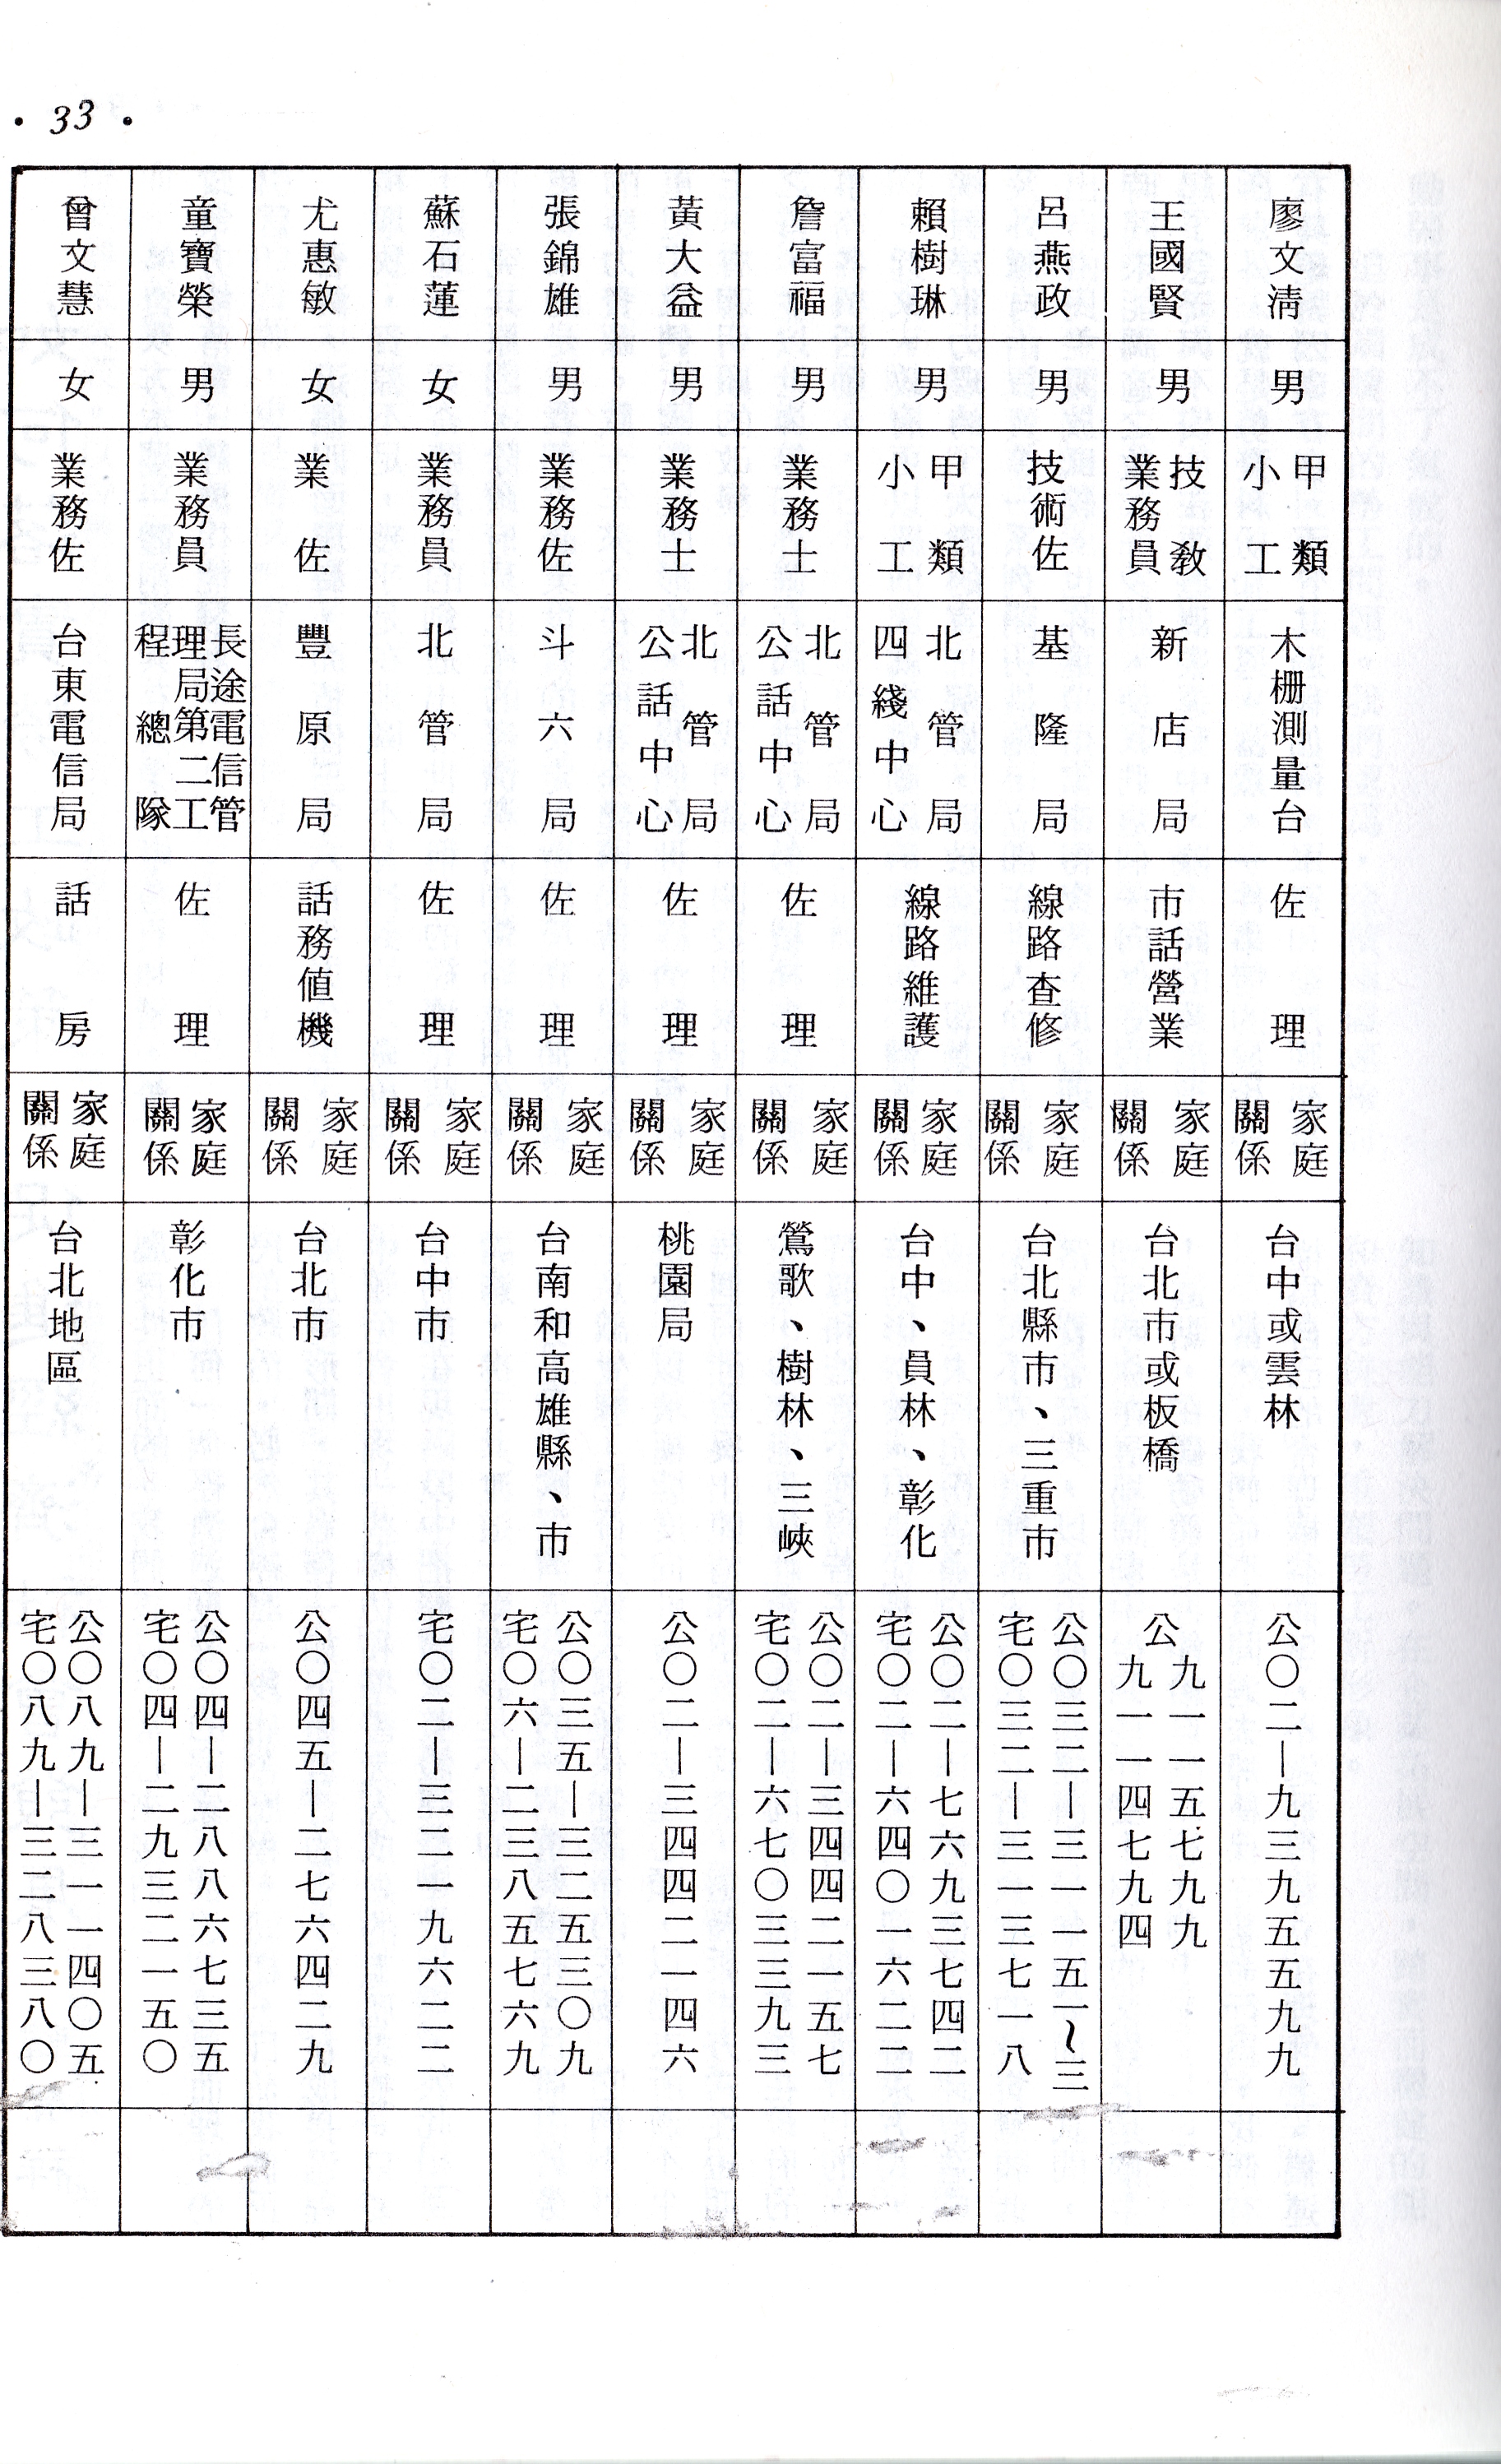 • 33 •
廖文清
男
甲類
小工
木柵測量台
佐理
家庭
關係
台中或雲林
公〇二—九三九五五九九
王國賢
男
技教
業務員
新店局
市話營業
家庭
關係
台北市或板橋
公
九一一五七九九
九一一四七九四
呂燕政
男
技術佐
基隆局
線路查修
家庭
關係
台北縣市、三重市
公〇三二—三一一五一~三
宅〇三二—三一三七一八
賴樹琳
男
甲類
小工
北管局
四綫中心
線路維護
家庭
關係
台中、員林、彰化
公〇二—七六九三七四二
宅〇二—六四〇一六二二
詹富福
男
業務士
北管局
公話中心
佐理
家庭
關係
鶯歌、樹林、三峽
公〇二—三四四二一五七
宅〇二—六七〇三三九三
黃大益
男
業務士
北管局
公話中心
佐理
家庭
關係
桃園局
公〇二—三四四二一四六
張錦雄
男
業務佐
斗六局
佐理
家庭
關係
台南和高雄縣、市
公〇三五—三二五三〇九
宅〇六—二三八五七六九
蘇石蓮
女
業務員
北管局
佐理
家庭
關係
台中市
宅〇二—三二一九六二二
尤惠敏
女
業佐
豐原局
話務值機
家庭
關係
台北市
公〇四五—二七六四二九
童寶榮
男
業務員
長途電信管
理局第二工
程總隊
佐理
家庭
關係
彰化市
公〇四—二八八六七三五
宅〇四—二九三二一五〇
曾文慧
女
業務佐
台東電信局
話房
家庭
關係
台北地區
公〇八九—三一一四〇五
宅〇八九—三二八三八〇